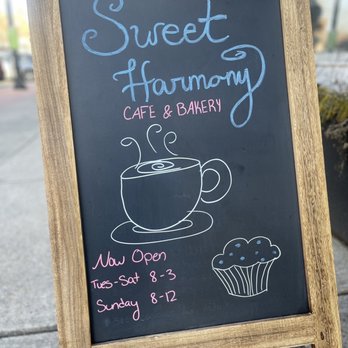 Sweet
Harmony
CAFE & BAKERY
Now Open
Tues-Sat 8-3
Sunday 8-12